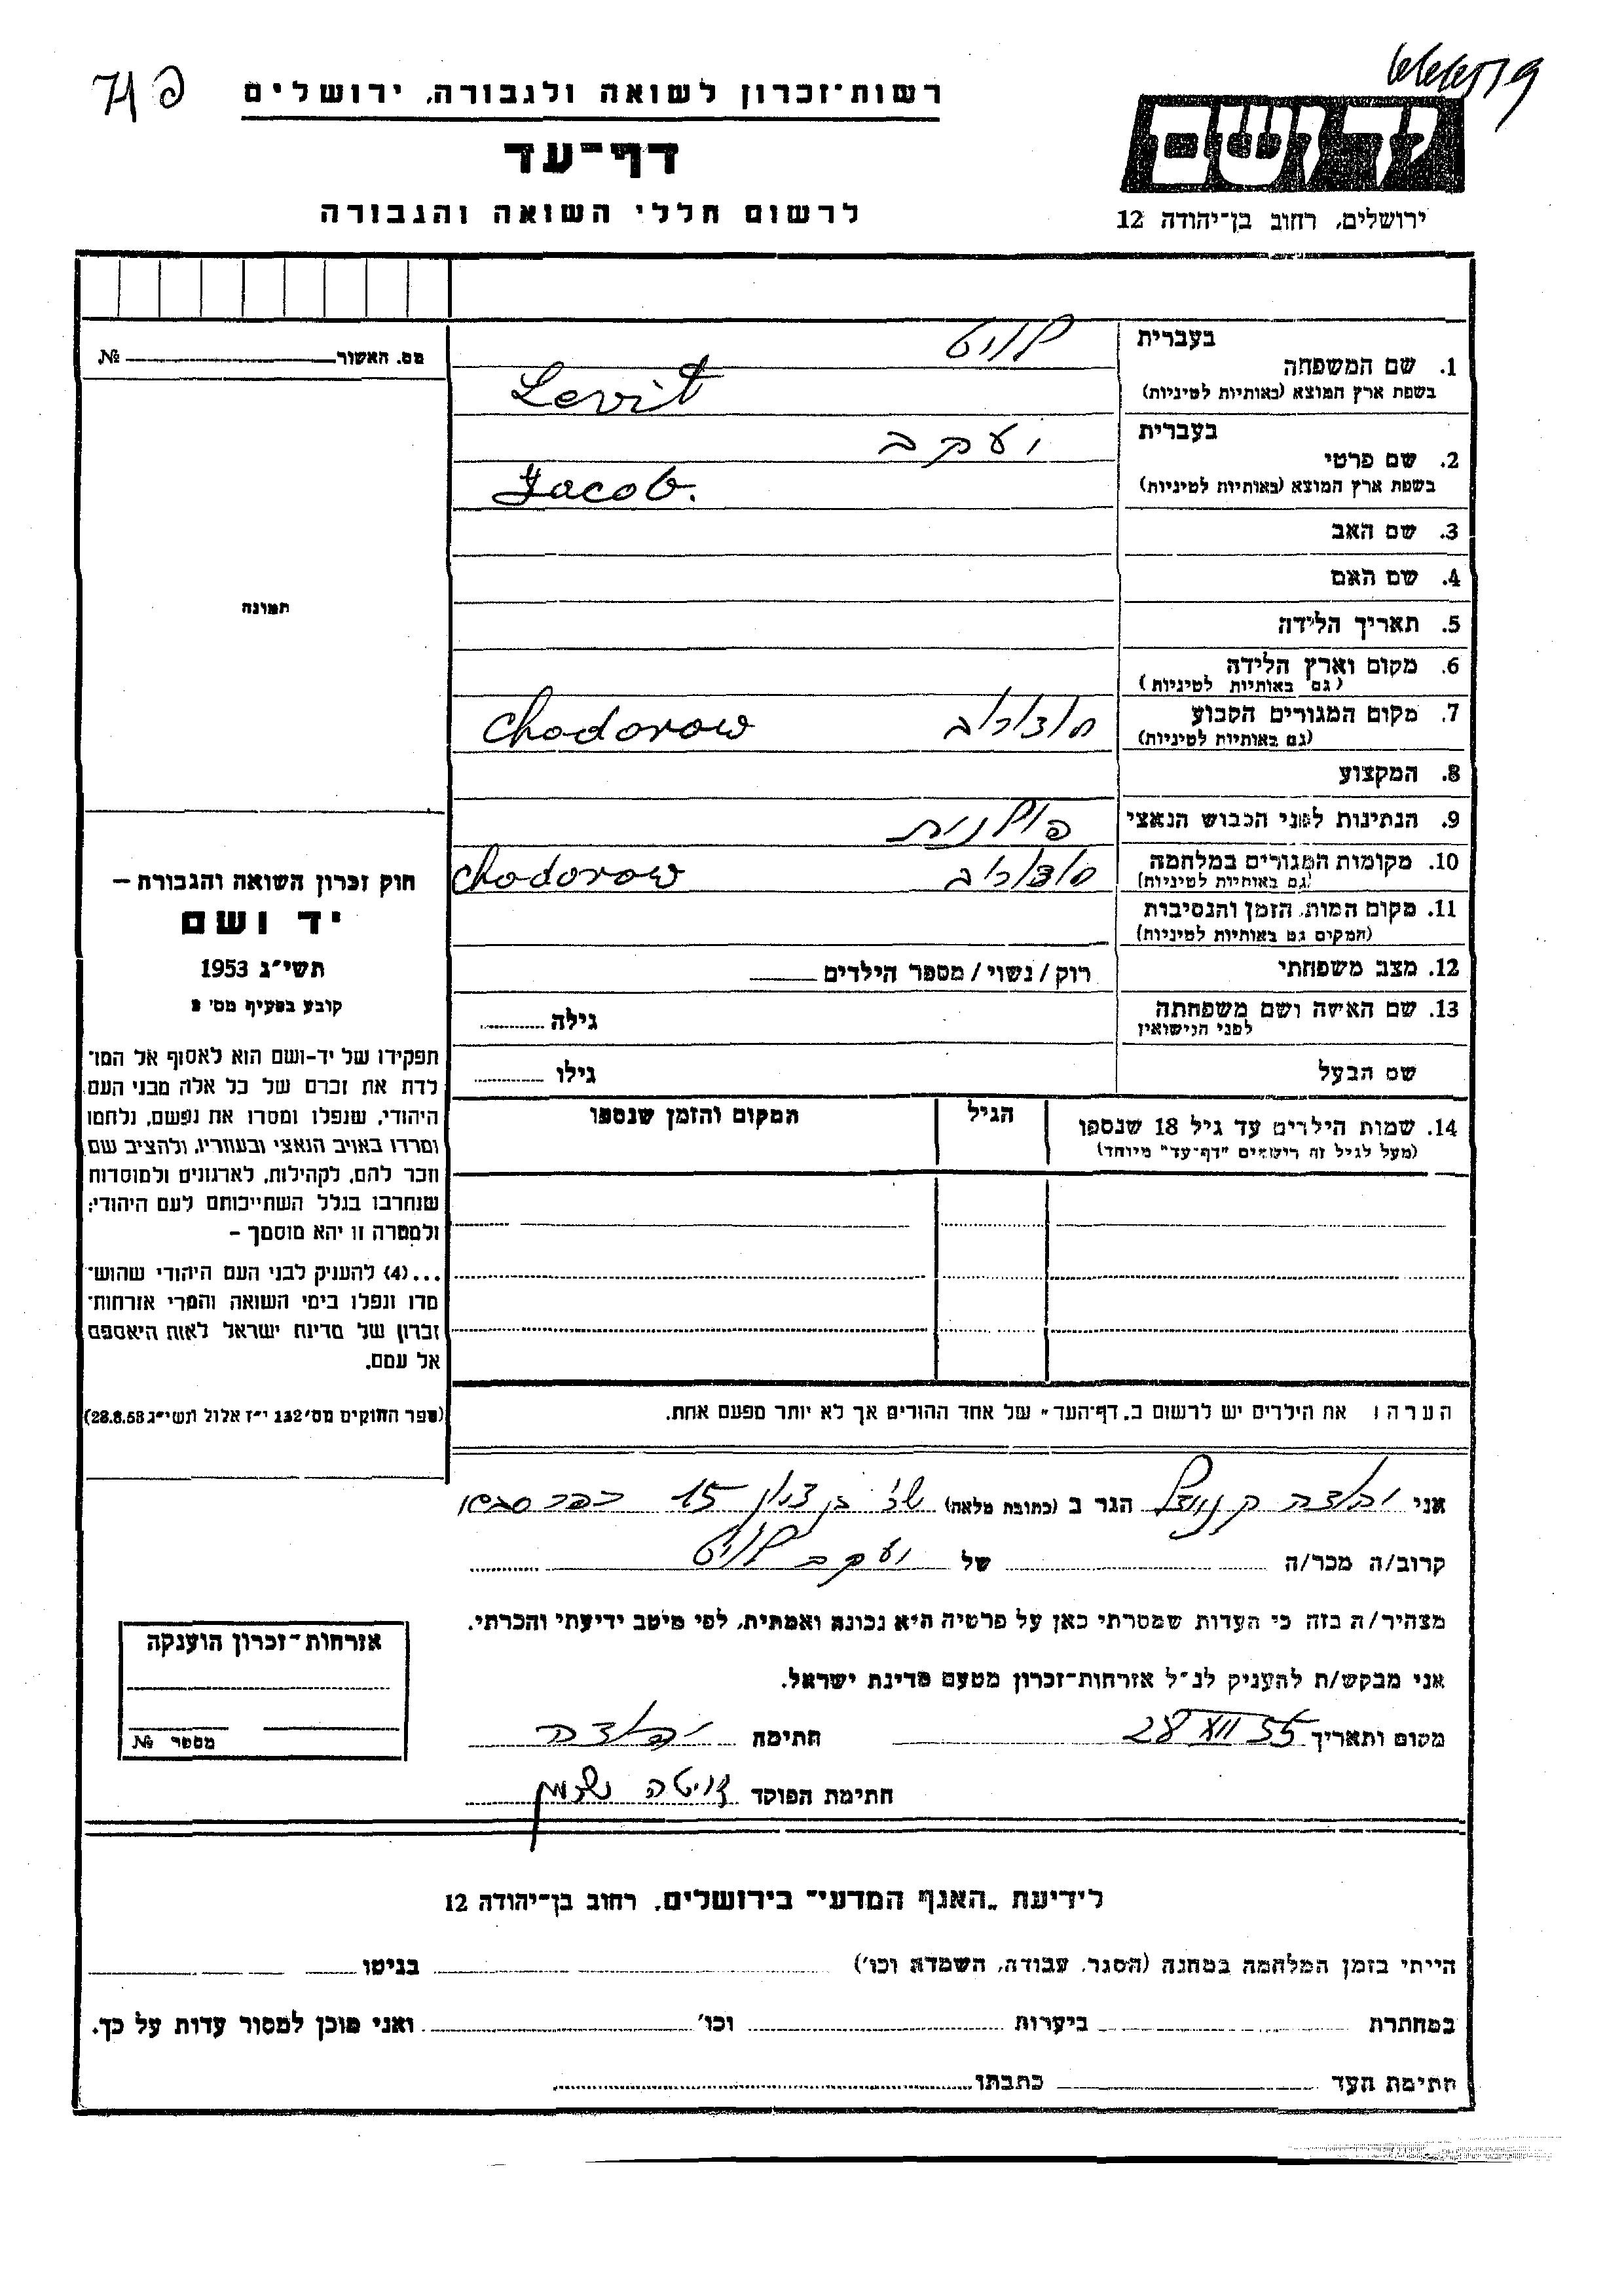 רשות־זכרון לשואה ולגבורה, ירושלים
דף־עד
לרשום חללי השואה והגבורה
ידושם
ירושלים, רחוב בן־יהודה 12
בעברית לויט
1. שם המשפחה
בשפת ארץ המוצא (באותיות לטיניות) Levit
בעברית יעקב
2. שם פרטי
בשפת ארץ המוצא (באותיות לטיניות) Jacob.
3. שם האב
4. שם האם
5. תאריך הלידה
6. מקום וארץ הלידה
(גם באותיות לטיניות)
7. מקום המגורים הקבוע חודורוב Chodorow
(גם באותיות לטיניות)
8. המקצוע
9. הנתינות לפני הכבוש הנאצי פולנית
10. מקומות המגורים במלחמה חודורוב Chodorow
(גם באותיות לטיניות)
11. מקום המות, הזמן והנסיבות
(המקום גם באותיות לטיניות)
12. מצב משפחתי רוק / נשוי / מספר הילדים
13. שם האישה ושם משפחתה גילה
לפני הנישואין
שם הבעל גילו
14. שמות הילדים עד גיל 18 שנספו הגיל המקום והזמן שנספו
(מעל לגיל זה רישמים "דף-עד" מיוחד)
מס. האשור №
תמונה
חוק זכרון השואה והגבורת –
יד ושם
תשי"ג 1953
קובע בסעיף מס' 2
תפקידו של יד-ושם הוא לאסוף אל המו־
לדת את זכרם של כל אלה מבני העם
היהודי, שנפלו ומסרו את נפשם, נלחמו
ומרדו באויב הנאצי ובעוזריו, ולהציב שם
וזכר להם, לקהילות, לארגונים ולמוסדות
שנחרבו בגלל השתייכותם לעם היהודי;
ולמטרה זו יהא מוסמך –
...(4) להעניק לבני העם היהודי שהוש־
מדו ונפלו בימי השואה והמרי אזרחות־
זכרון של מדינת ישראל לאות היאספם
אל עמם.
(ספר החוקים מס' 132 י"ז אלול תשי"ג 28.8.53)
הערה: את הילדים יש לרשום ב"דף־העד" של אחד ההורים אך לא יותר מפעם אחת.
אני יהודה הגר ב (כתובת מלאה) בן ציון 15 כפר סבא
קרוב/ה מכר/ה של יעקב לויט
מצהיר/ה בזה כי העדות שמסרתי כאן על פרטיה היא נכונה ואמתית, לפי מיטב ידיעתי והכרתי.
אני מבקש/ת להעניק לנ"ל אזרחות־זכרון מטעם מדינת ישראל.
מקום ותאריך 28 XII 55 חתימה יהודה
חתימת הפוקד
אזרחות־זכרון הוענקה
מספר №
לידיעת "האגף המדעי" בירושלים, רחוב בן־יהודה 12
הייתי בזמן המלחמה במחנה (הסגר, עבודה, השמדה וכו') בגיטו
במחתרת ביערות וכו' ואני מוכן למסור עדות על כך.
חתימת העד כתבתו